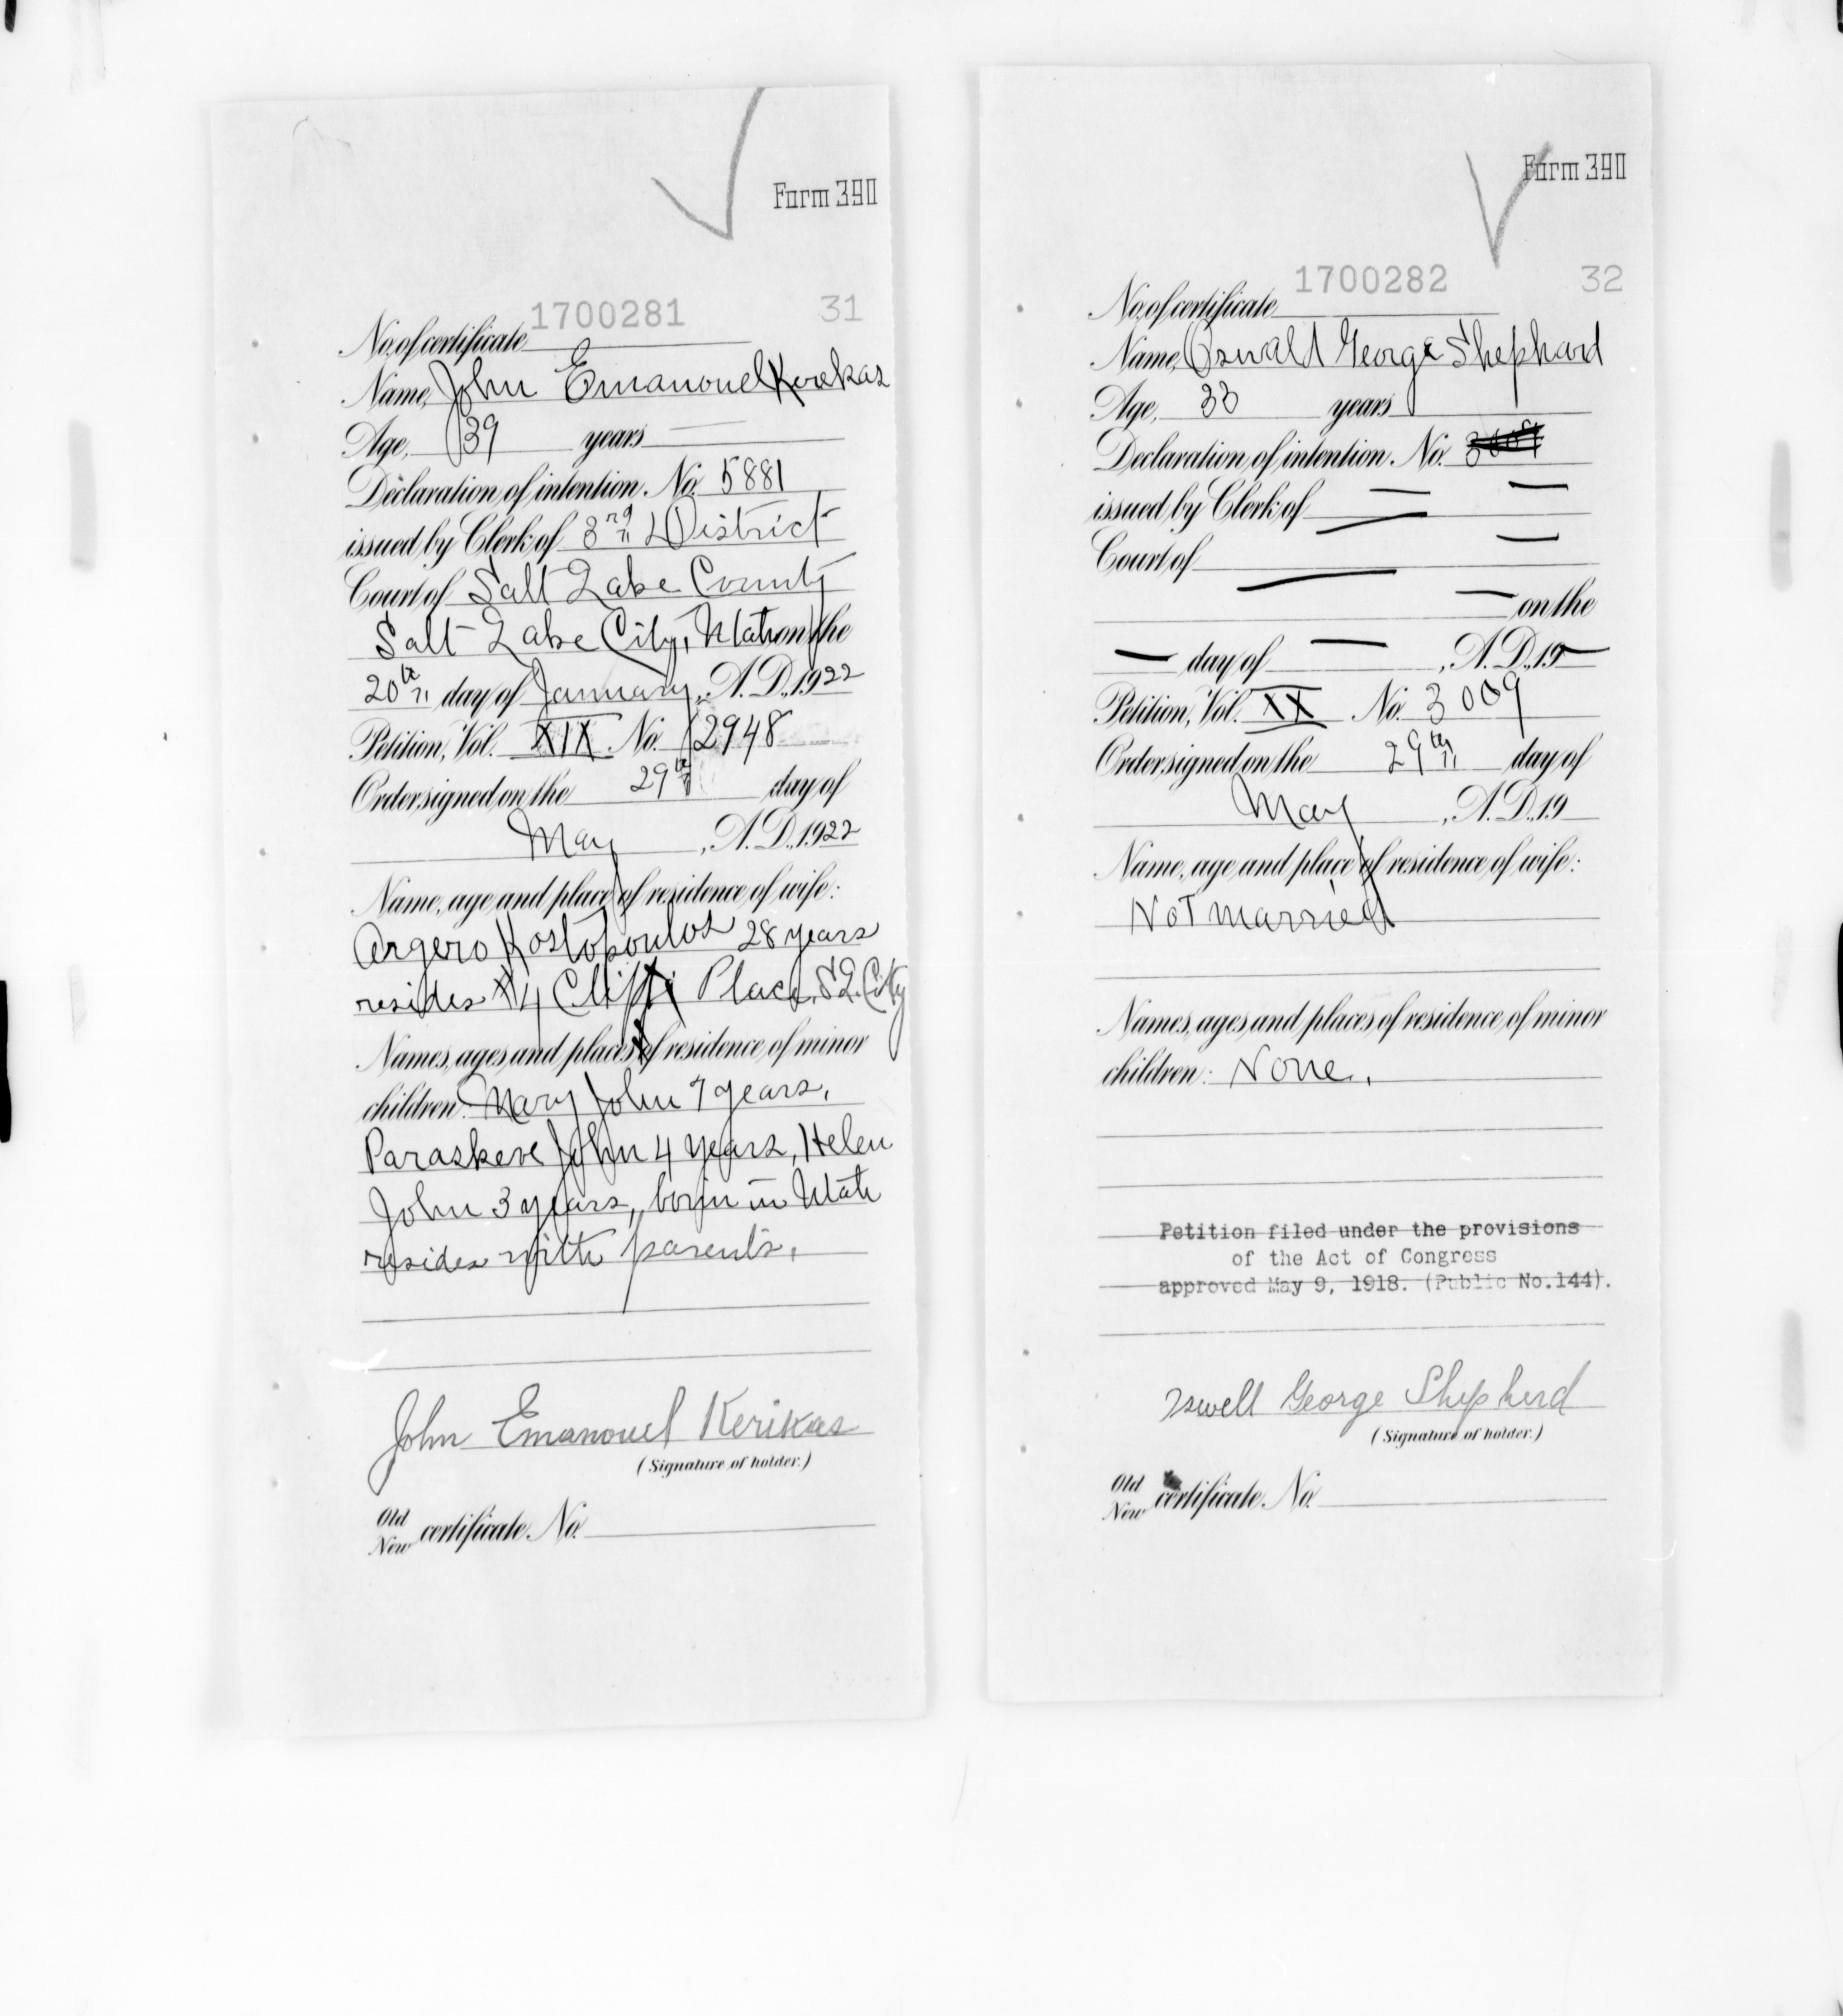 Form 390
1700281 31
No. of certificate
Name, John Emanouel Kerekas
Age, 39 years
Declaration of intention. No. 5881
issued by Clerk of 3rd District
Court of Salt Lake County
Salt Lake City, Utah on the
20th day of January, A. D., 1922
Petition, Vol. XIX No. 2948
Order signed on the 29th day of
May, A. D., 1922
Name, age and place of residence of wife:
Argero Kostopoulos 28 years
resides #4 Place, S L City
Names, ages and places of residence of minor
children: Mary John 7 years,
Paraskeve John 4 years, Helen
John 3 years, born in Utah
resides with parents.
John Emanouel Kerikas
(Signature of holder.)
Old
New certificate No.
Form 390
1700282 32
No. of certificate
Name, Oswald George Shephard
Age, 33 years
Declaration of intention. No.
issued by Clerk of —
Court of —
— on the
— day of —, A. D., 19—
Petition, Vol. XX No. 3009
Order signed on the 29th day of
May, A. D., 19
Name, age and place of residence of wife:
Not married
Names, ages and places of residence of minor
children: None.
Petition filed under the provisions
of the Act of Congress
approved May 9, 1918. (Public No.144).
George Shepherd
(Signature of holder.)
Old
New certificate No.